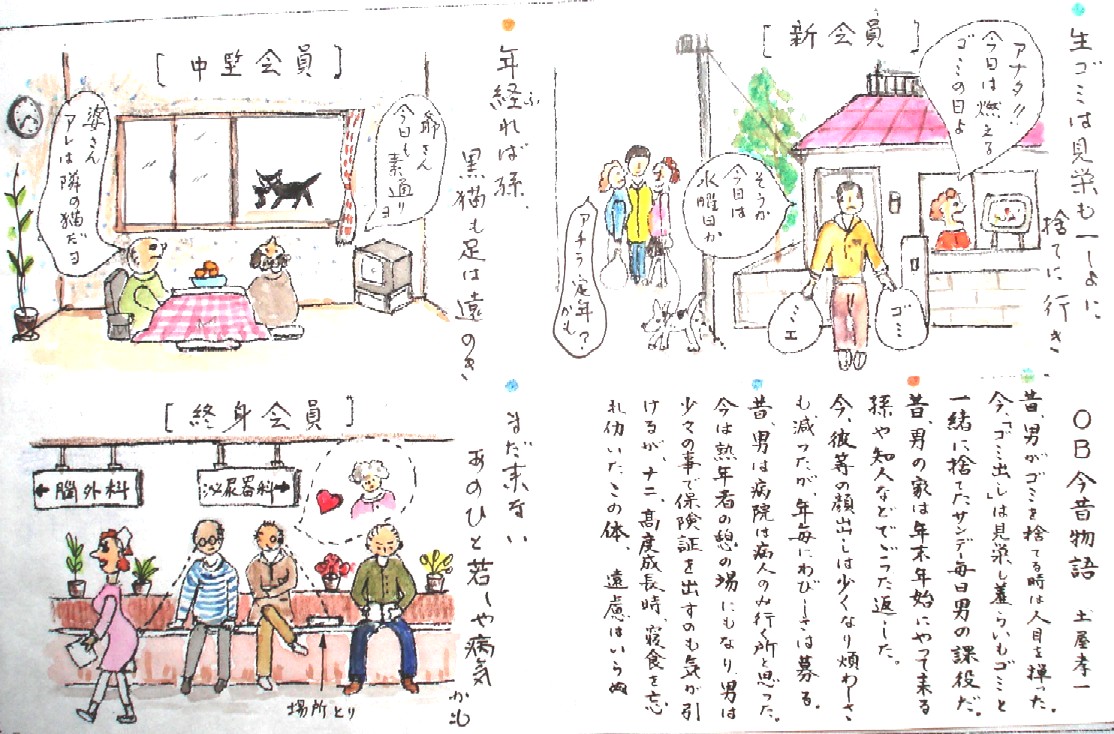 生ゴミは見栄も一しょに
捨てに行き
[新会員]
アナタ!!
今日は燃える
ゴミの日よ
そうか
今日は
水曜日か
アチラ定年?
かも
ゴミ
ミエ
年経れば孫、
ふ
黒猫も足は遠のき
[中堅会員]
爺さん
今日も素通り
ヨ
婆さん
アレは隣の猫だヨ
OB今昔物語
土屋孝一
昔、男がゴミを捨てる時は人目を憚った。
今、「ゴミ出し」は見栄し羞らいもゴミと
一緒に捨てたサンデー毎日男の課役だ。
昔、男の家は年末年始にやって来る
孫や知人などでごった返した。
今、彼等の顔出しは少くなり煩わしさ
も減ったが、年毎にわびしさは募る。
昔、男は病院は病人のみ行く所と思った。
今は熟年者の憩の場にもなり、男は
少々の事で保険証を出すのも気が引
けるが、ナニ、高度成長時、寝食を忘
れ仂いたこの体、遠慮はいらぬ
まだ来ない
あのひと若しや病気
かも
[終身会員]
←脳外科
泌尿器科→
場所とり